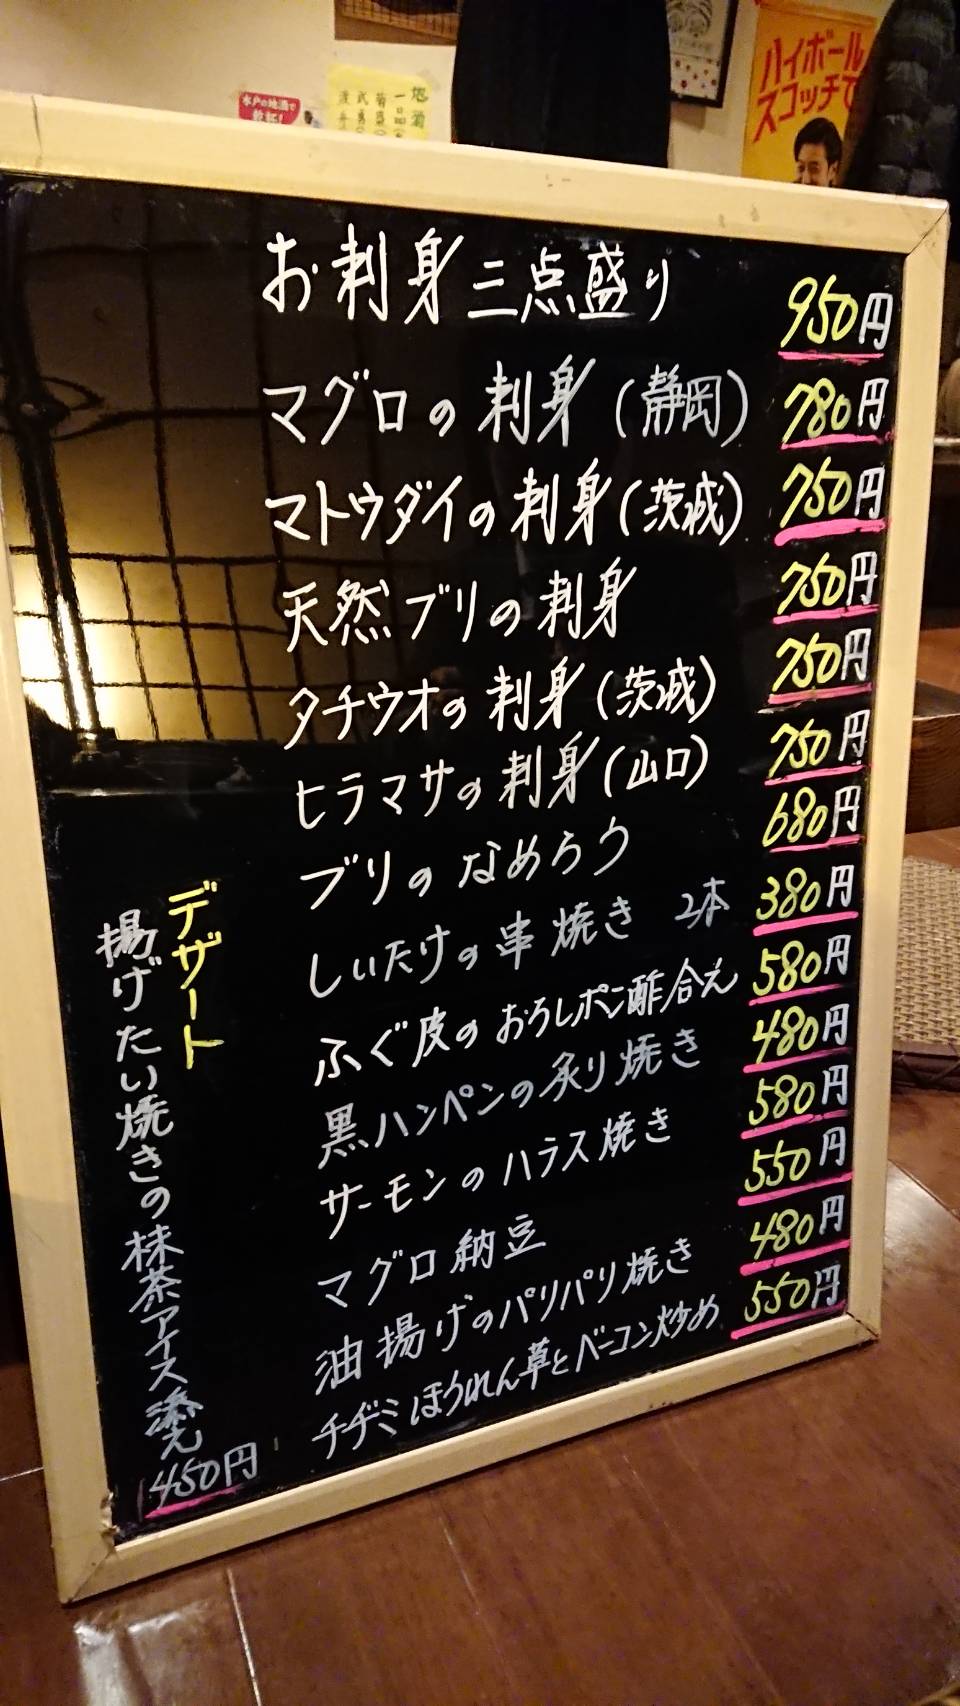 水戸の地酒で
乾杯!
地酒
ハイボール
スコッチで
お刺身三点盛り 950円
マグロの刺身(静岡) 780円
マトウダイの刺身(茨城) 750円
天然ブリの刺身 750円
タチウオの刺身(茨城) 750円
ヒラマサの刺身(山口) 750円
ブリのなめろう 680円
しいたけの串焼き 2本 380円
ふぐ皮のおろしポン酢合え 580円
黒ハンペンの炙り焼き 480円
サーモンのハラス焼き 580円
マグロ納豆 550円
油揚げのパリパリ焼き 480円
チヂミほうれん草とベーコン炒め 550円
デザート
揚げたい焼きの抹茶アイス添え
450円